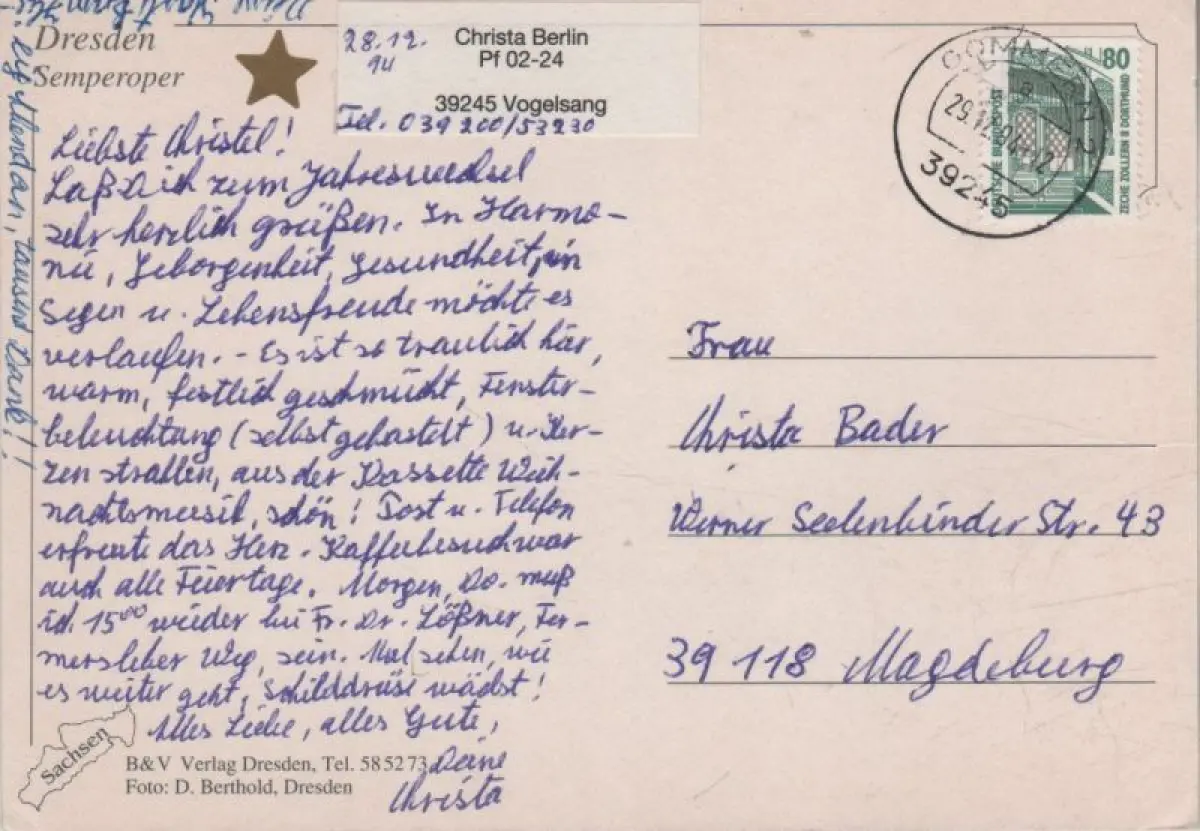 Dresden
Semperoper
28.12.
94
Christa Berlin
Pf 02-24
39245 Vogelsang
Tel. 039200/53230
Liebste Christel!
Laß Dich zum Jahreswechsel
sehr herzlich grüßen. In Harmo-
nie, Geborgenheit, Gesundheit, in
Segen u. Lebensfreude möchte es
verlaufen. - Es ist so traulich hier,
warm, festlich geschmückt, Fenster-
beleuchtung (selbst gebastelt) u. Ker-
zen strahlen, aus der Kassette Weih-
nachtsmusik, schön! Post u. Telefon
erfreute das Herz. Kaffeebesuch war
auch alle Feiertage. Morgen, Do. muß
ich 15⁰⁰ wieder bei Fr. Dr. Lößner, Fer-
mersleber Weg, sein. Mal sehen, wie
es weiter geht, Schilddrüse wächst!
Alles Liebe, alles Gute,
Deine
Christa
tausend Dank!!
Sachsen
B&V Verlag Dresden, Tel. 58 52 73
Foto: D. Berthold, Dresden
GOMMERN 2
29.12.94-12
39245
80
DEUTSCHE BUNDESPOST
ZECHE ZOLLERN II DORTMUND
Frau
Christa Bader
Werner Seelenbinder Str. 43
39 118 Magdeburg